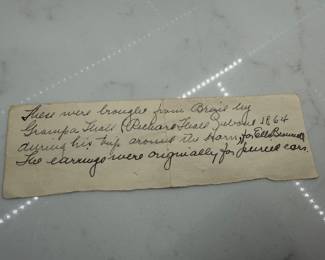 These were brought from Brazil by
Grampa Hall (Richard Hall) about 1864
during his trip around the Horn, for Ella
The earrings were originally for pierced ears.